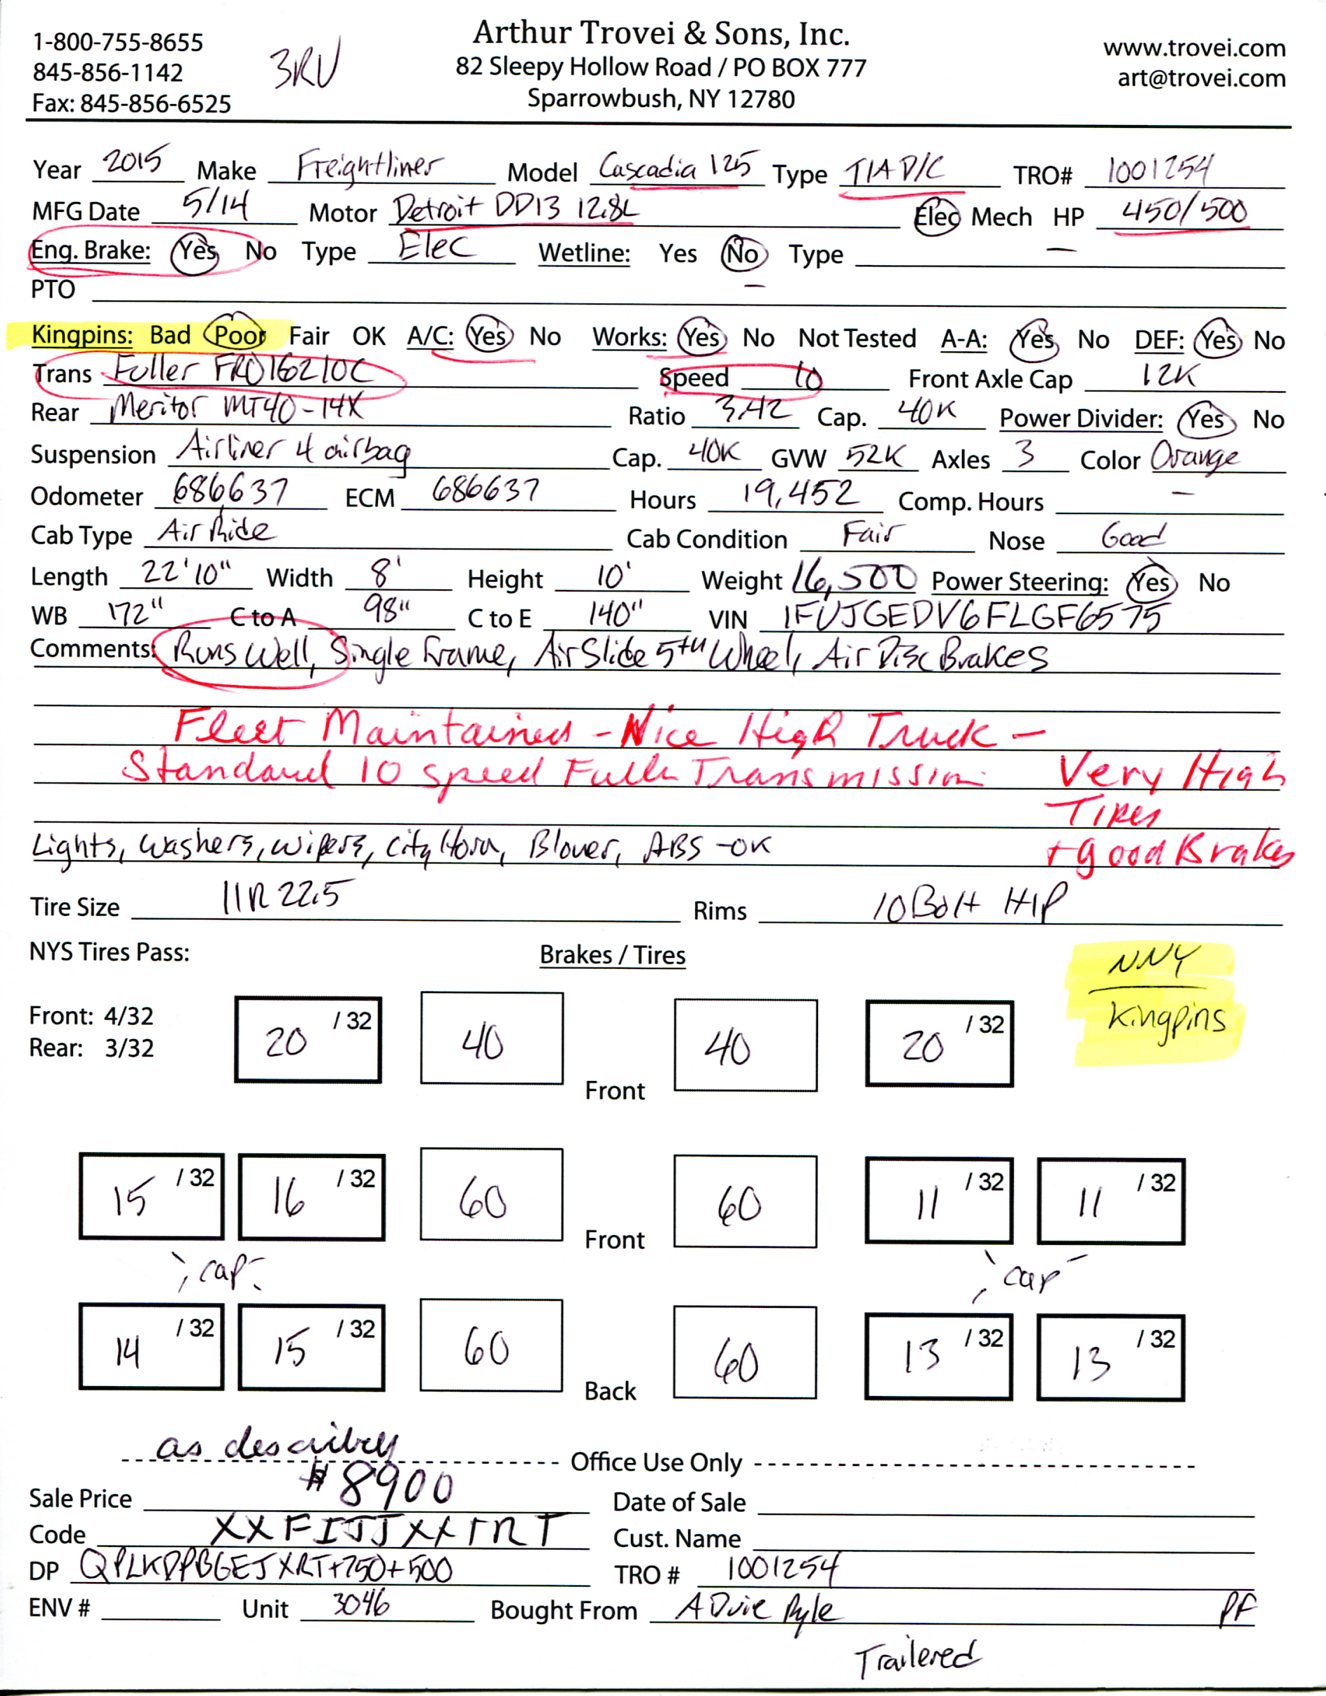 1-800-755-8655
845-856-1142
Fax: 845-856-6525
3RU
Arthur Trovei & Sons, Inc.
82 Sleepy Hollow Road / PO BOX 777
Sparrowbush, NY 12780
www.trovei.com
art@trovei.com
Year 2015 Make Freightliner Model Cascadia 125 Type T/A D/C TRO# 1001254
MFG Date 5/14 Motor Detroit DD13 12.8L Elec Mech HP 450/500
Eng. Brake: Yes No Type Elec Wetline: Yes No Type —
PTO —
Kingpins: Bad Poor Fair OK A/C: Yes No Works: Yes No Not Tested A-A: Yes No DEF: Yes No
Trans Fuller FRO16210C Speed 10 Front Axle Cap 12K
Rear Meritor MT40-14X Ratio 3.42 Cap. 40K Power Divider: Yes No
Suspension Airliner 4 airbag Cap. 40K GVW 52K Axles 3 Color Orange
Odometer 686637 ECM 686637 Hours 19,452 Comp. Hours —
Cab Type Air Ride Cab Condition Fair Nose Good
Length 22'10" Width 8' Height 10' Weight 16,500 Power Steering: Yes No
WB 172" C to A 98" C to E 140" VIN 1FUJGEDV6FLGF6575
Comments: Runs Well, Single Frame, Air Slide 5th Wheel, Air Disc Brakes
Fleet Maintained - Nice High Truck -
Standard 10 speed Fuller Transmission
Very High
Tires
+ good Brakes
Lights, Washers, Wipers, City Horn, Blower, ABS - OK
Tire Size 11R22.5 Rims 10 Bolt H/P
NYS Tires Pass: Brakes / Tires
NNY
Kingpins
Front: 4/32
Rear: 3/32
20 /32 40 Front 40 20 /32
15 /32 16 /32 60 Front 60 11 /32 11 /32
cap cap
14 /32 15 /32 60 Back 60 13 /32 13 /32
as described
Office Use Only
Sale Price $8900 Date of Sale
Code XXFIJJXXIRT Cust. Name
DP QPLKDPBGEJXRT+750+500 TRO # 1001254
ENV # Unit 3046 Bought From A Duie Pyle PF
Trailered